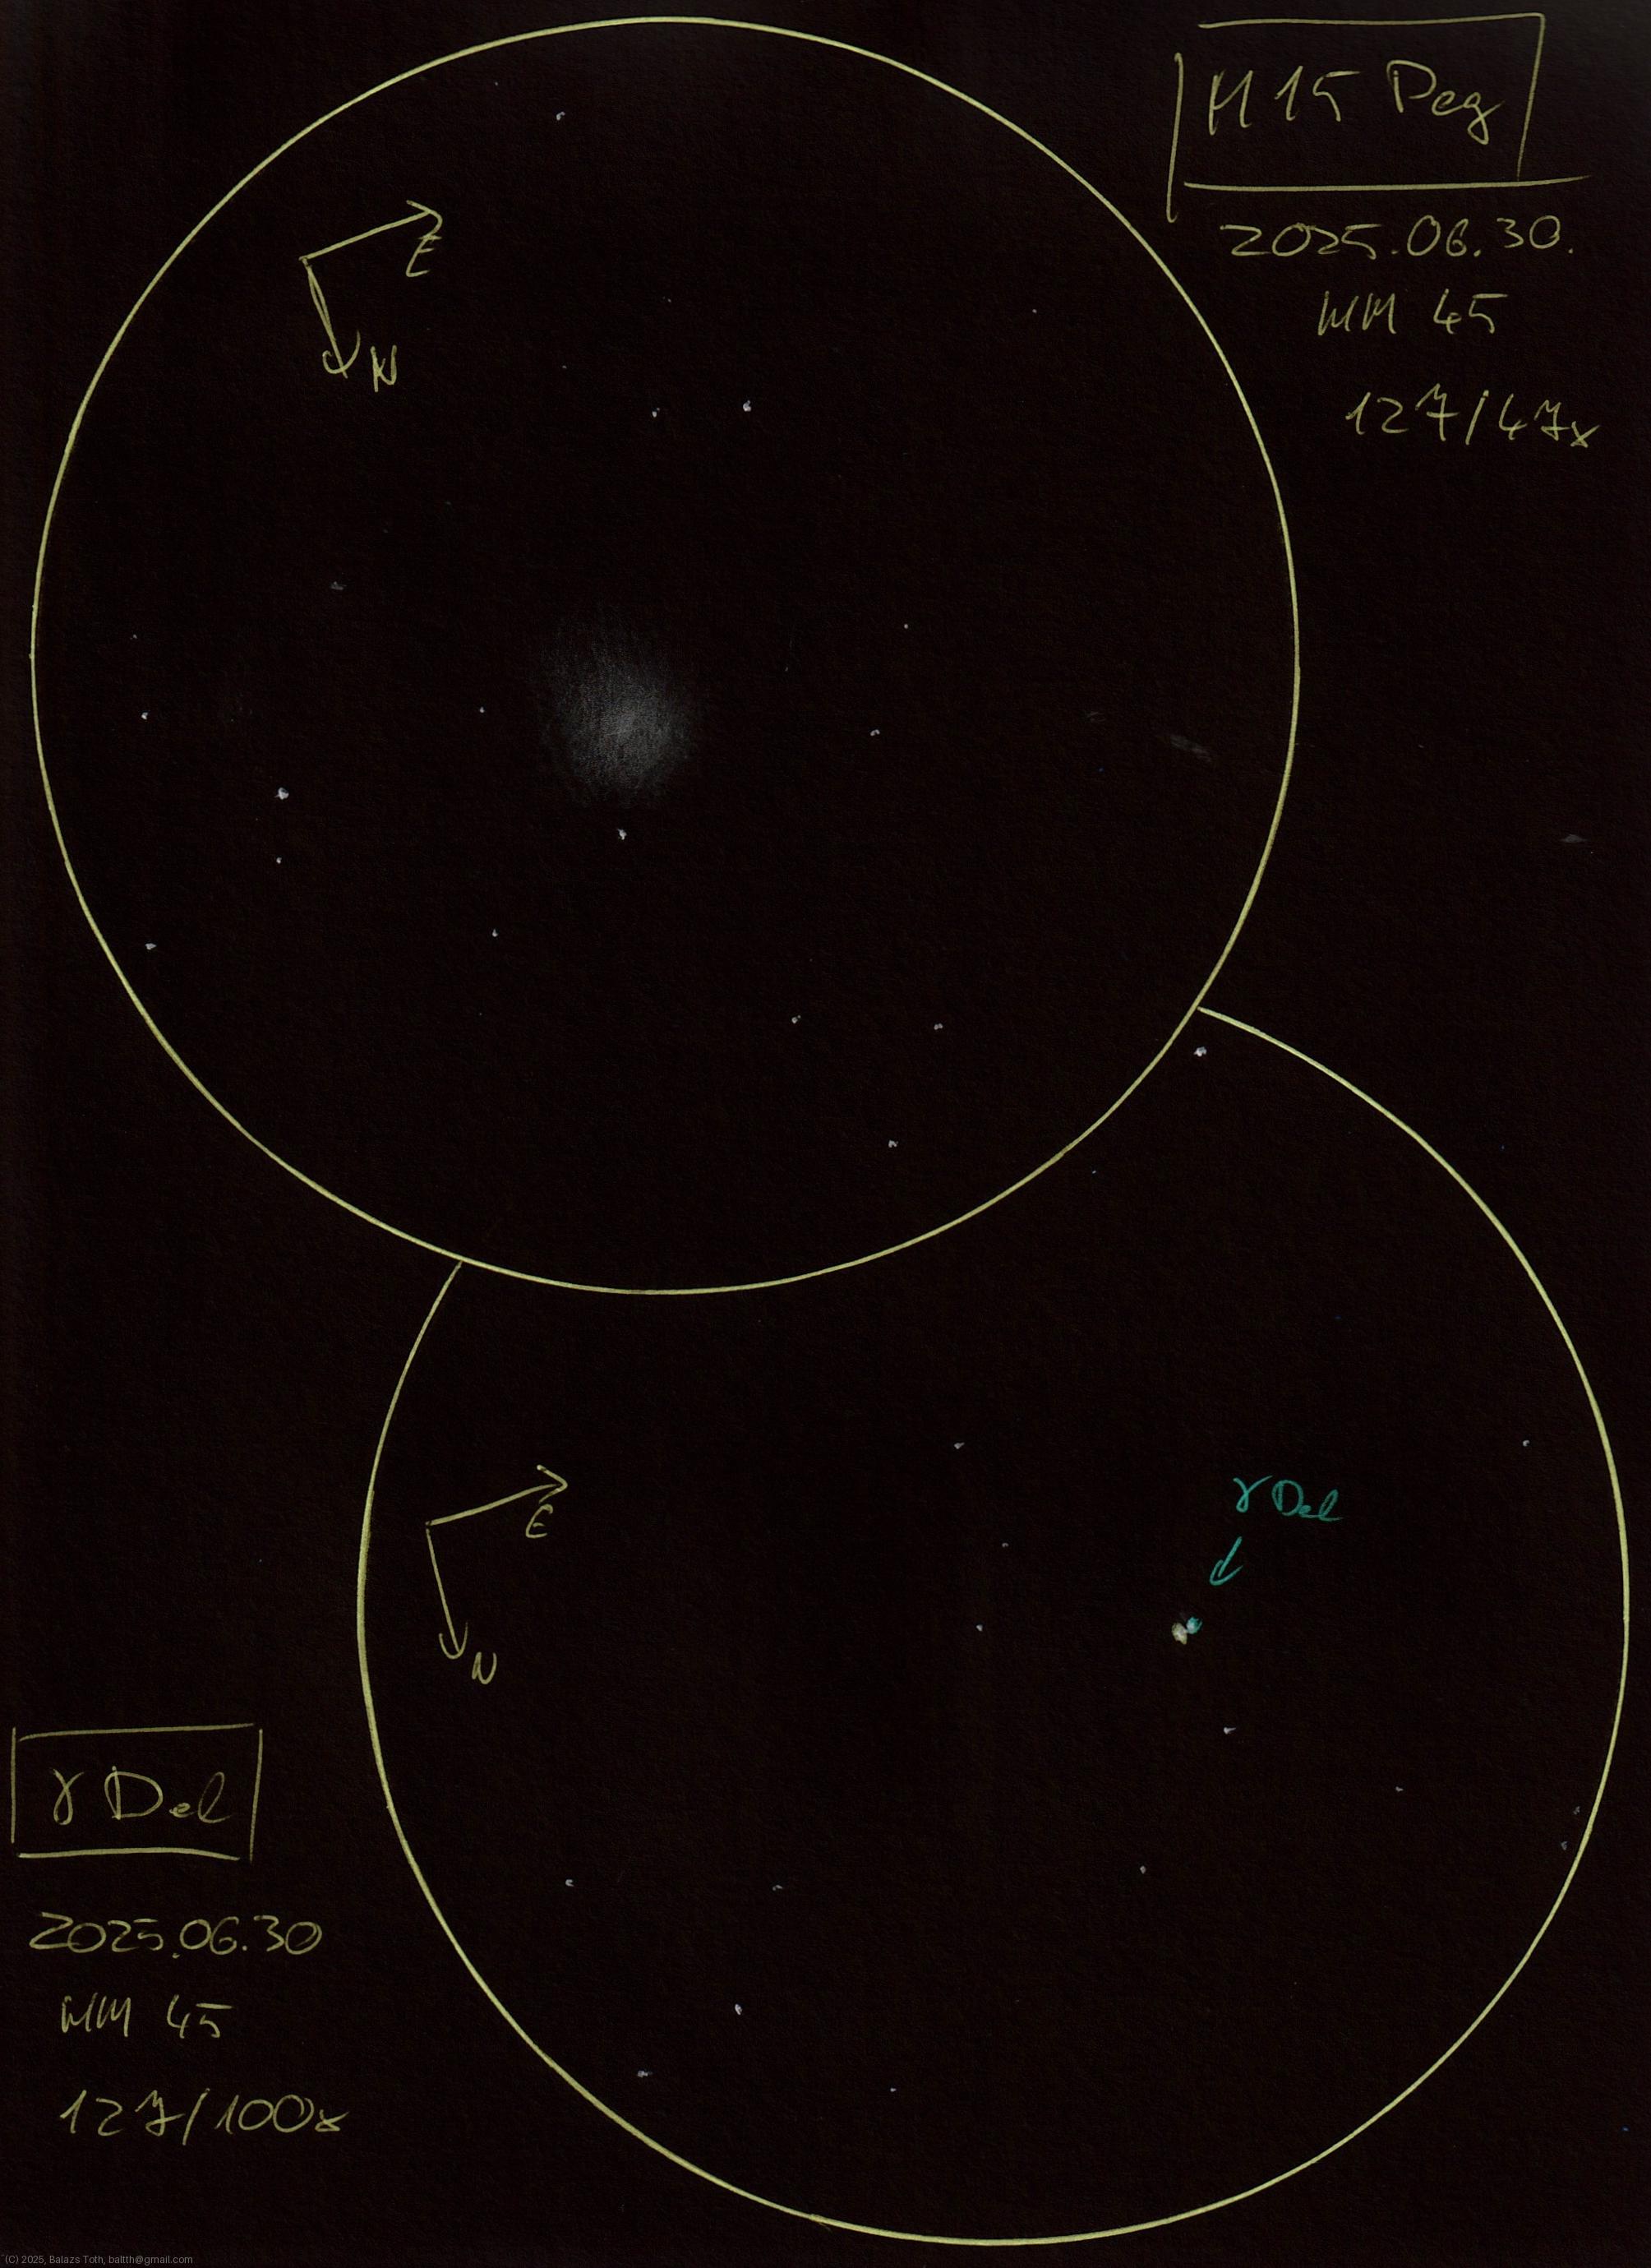 M 15 Peg
2025.06.30.
MM 45
127/47x
E
N
E
N
γ Del
γ Del
2025.06.30
MM 45
127/100x
(C) 2025, Balazs Toth, baltth@gmail.com